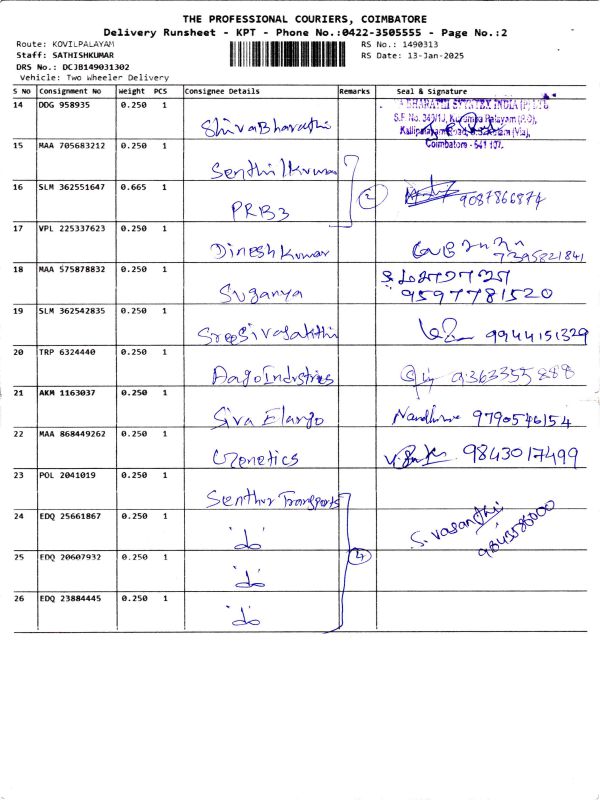 THE PROFESSIONAL COURIERS, COIMBATORE
Delivery Runsheet - KPT - Phone No.:0422-3505555 - Page No.:2
Route: KOVILPALAYAM RS No.: 1490313
Staff: SATHISHKUMAR RS Date: 13-Jan-2025
DRS No.: DCJB149031302
Vehicle: Two Wheeler Delivery
S No Consignment No Weight PCS Consignee Details Remarks Seal & Signature
14 DDG 958935 0.250 1 ShivaBharathi
BHARATH SYNTEX INDIA (P) LTD
S.F. No. 349/1J, Kurumba Palayam (P.O),
Kalipalayam Road, S.S.Kulam (Via),
Coimbatore - 641 107.
15 MAA 705683212 0.250 1 Senthil Kumar
16 SLM 362551647 0.665 1 PRB3 2 9087866874
17 VPL 225337623 0.250 1 Dinesh Kumar 7395821841
18 MAA 575878832 0.250 1 Suganya 9597781520
19 SLM 362542835 0.250 1 SreeSivasakthi 9944151329
20 TRP 6324440 0.250 1 Aago Industries 9363355888
21 AKM 1163037 0.250 1 Siva Elango Nandhini 9790546154
22 MAA 868449262 0.250 1 Genetics 9843017499
23 POL 2041019 0.250 1 Senthur Transports
24 EDQ 25661867 0.250 1 "do" Sivasanthi
25 EDQ 20607932 0.250 1 "do" 4
26 EDQ 23884445 0.250 1 "do"